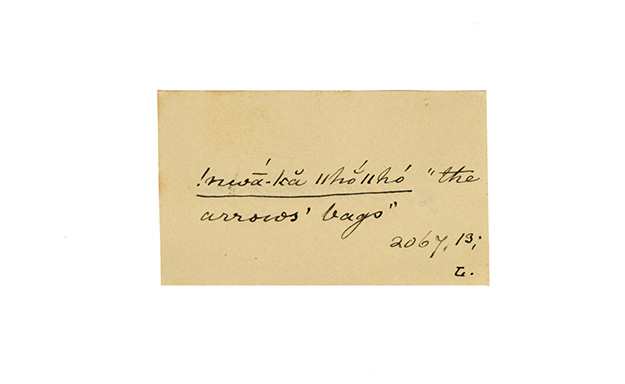 !nwā́-kă ǁhŏ́ǁhó "the
arrows' bags"
2067, 13;
L.